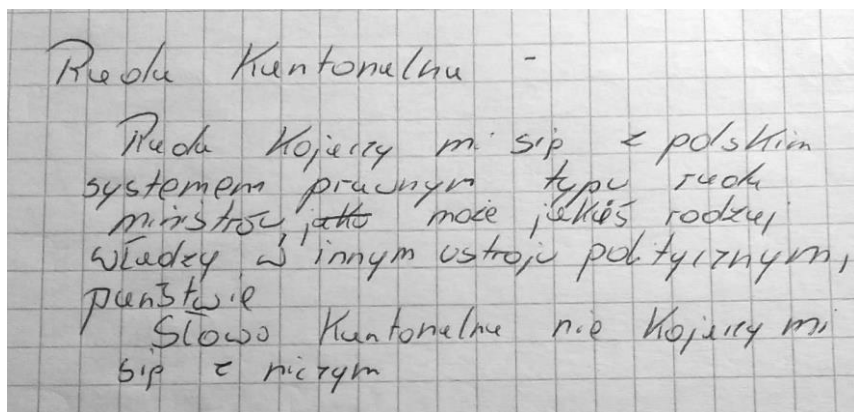 Rada Kantonalna -
Rada kojarzy mi się z polskim
systemem prawnym typu rada
ministrów, jako może jakiś rodzaj
władzy w innym ustroju politycznym,
państwie
Słowo Kantonalna nie kojarzy mi
się z niczym